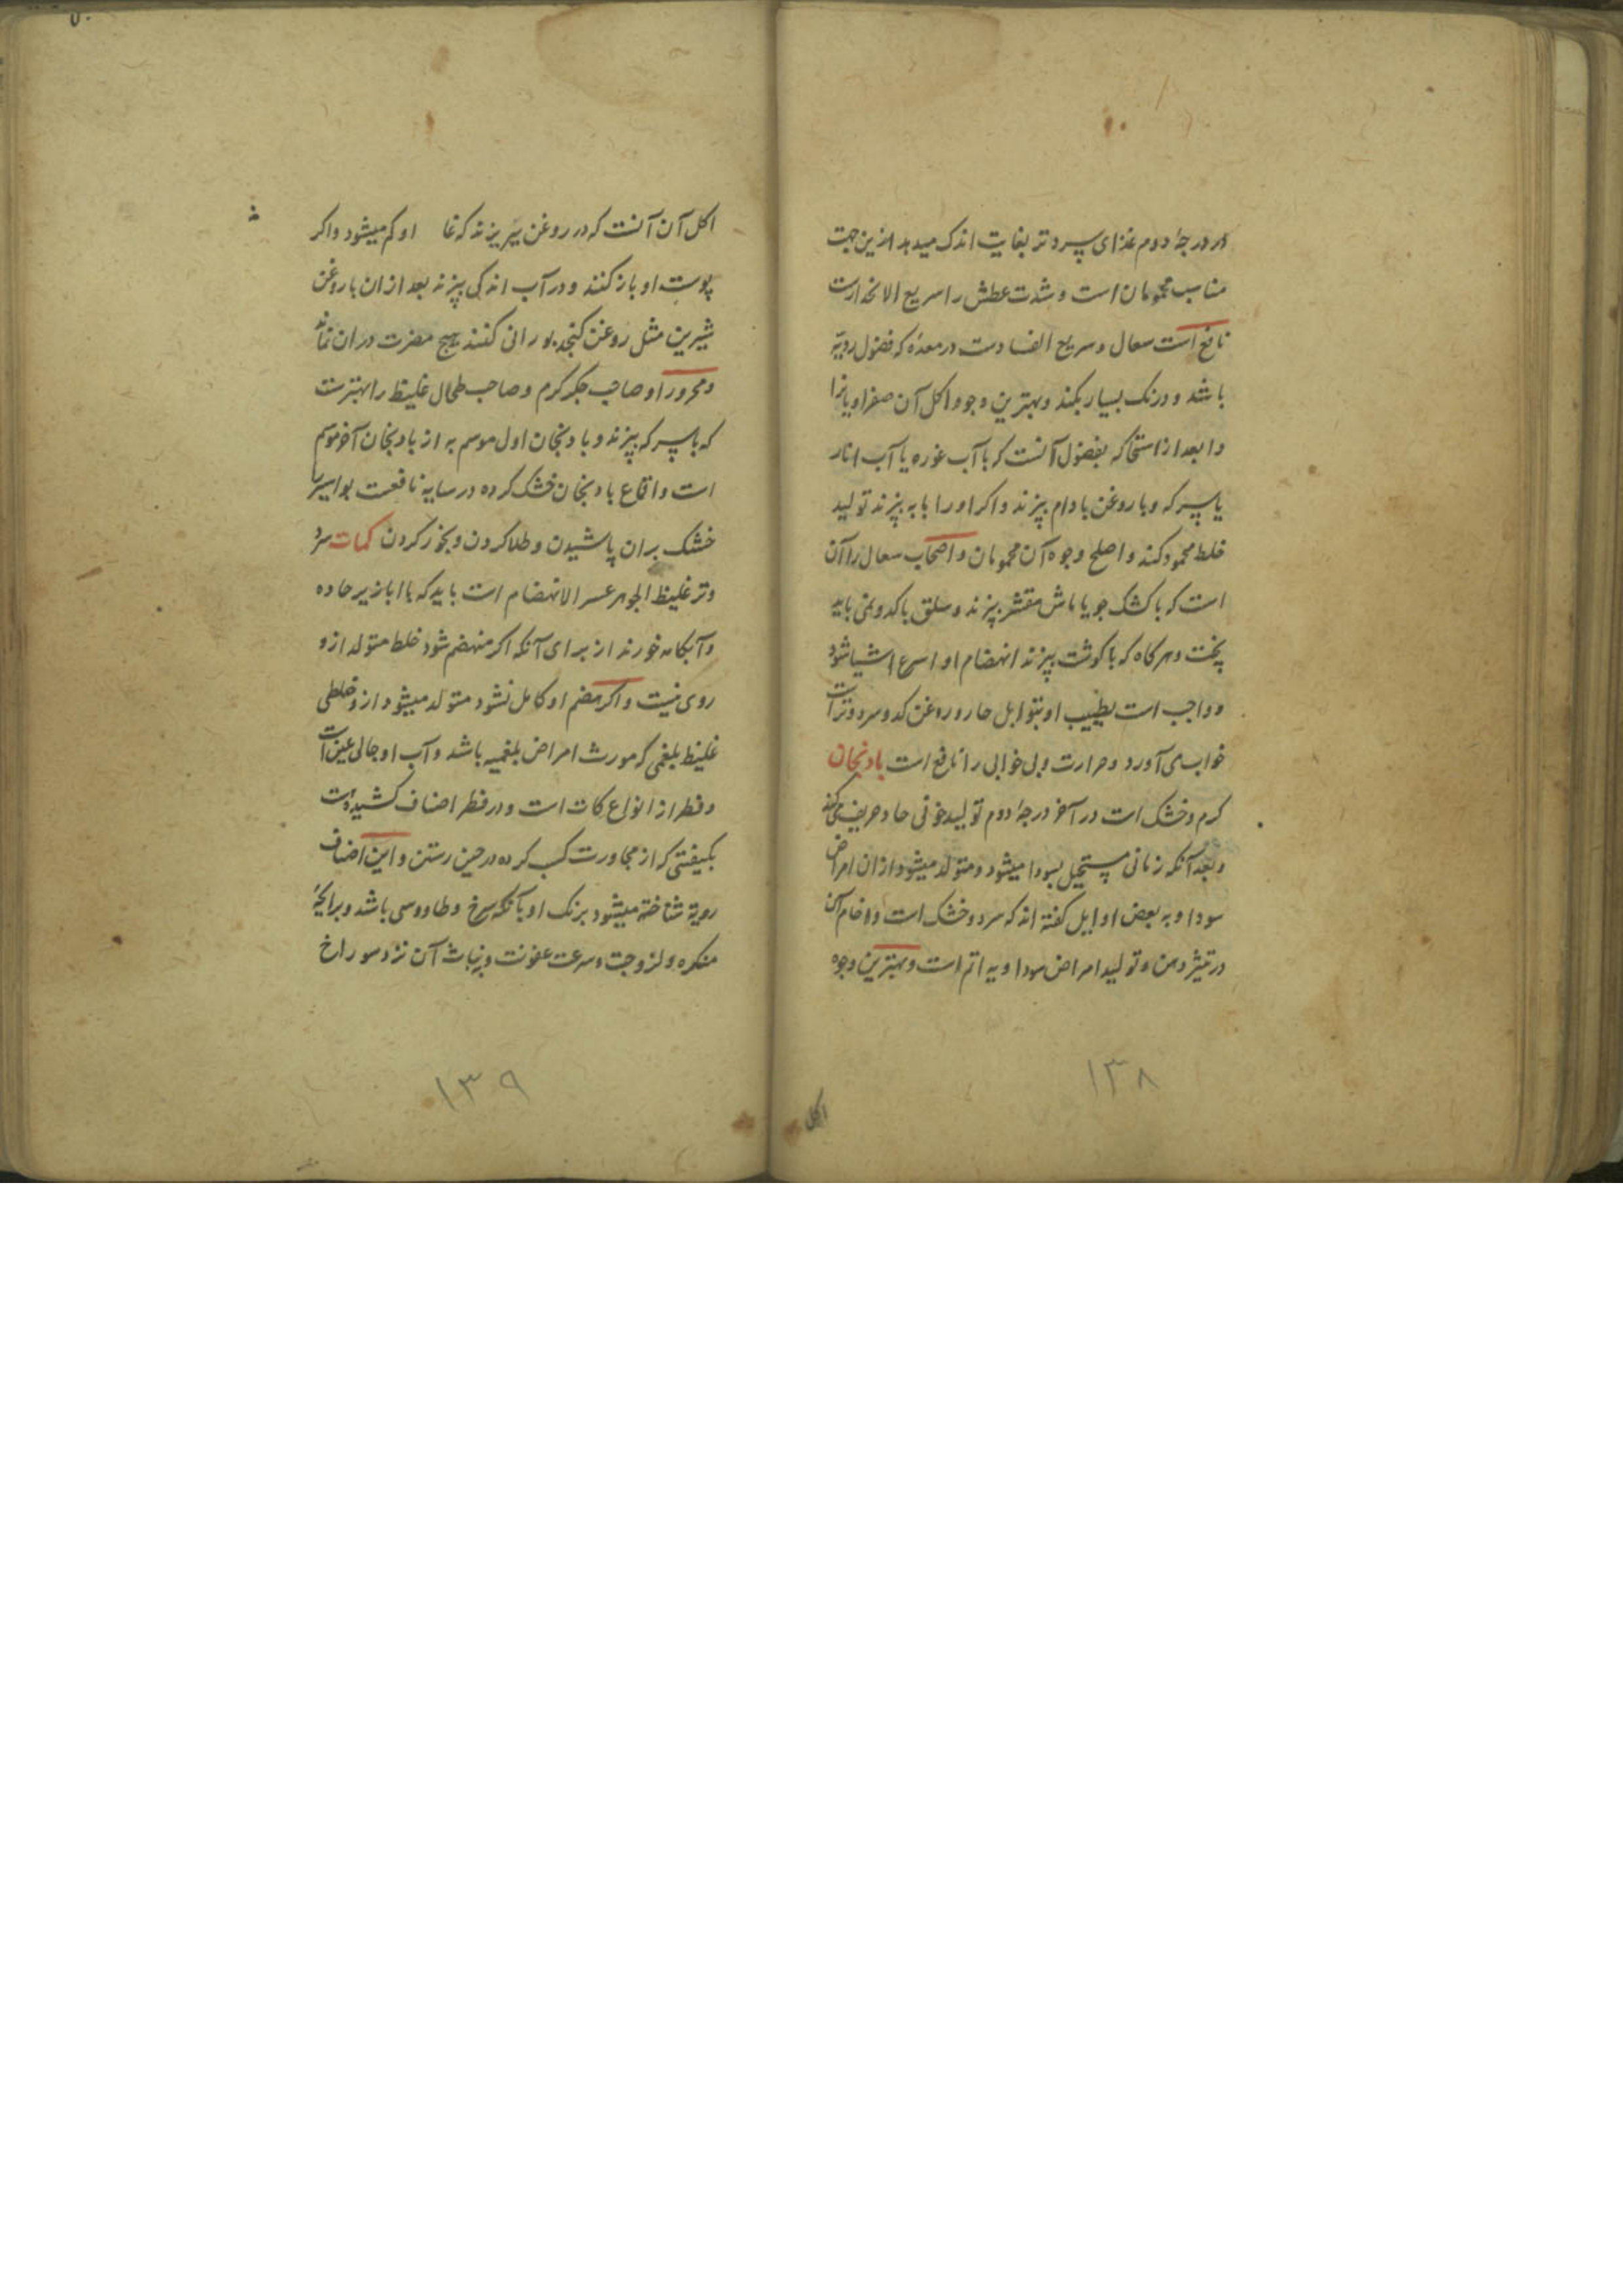 در درجهٔ دوم غذای سرد و تر بغایت اندک میدهد ازین جهت
مناسب محمومان است و شدت عطش را سریع الانحدارست
نافع است سعال و سریع الفسادست در معده که فضول ردیّه
باشد و درنک بسیار بکند و بهترین وجوه اکل آن صفراویانرا
و بعد از آنکه بفضول آنست که با آب غوره یا آب انار
یا سرکه و با روغن بادام بپزند و اکر او را با به بپزند تولید
خلط محمود کند و اصلح وجوه آن محمومان و اصحاب سعال را آن
است که با کشک جو یا ماش مقشر بپزند و سلق با کدو نمی باید
پخت و هرکاه که با کوشت بپزند انهضام او اسرع اشیا شود
و واجب است تطییب او بتوابل حار و روغن کدو سرد و ترست
خواب می آورد و حرارت و بی خوابی را نافع است بادنجان
کرم و خشک است در آخر درجهٔ دوم تولید خونی حاد حریف میکند
و بعد آنکه زمانی مستحیل بسودا میشود و متولد میشود ازان امراض
سودا و به بعض اوایل کفته اند که سرد و خشک است و خام آن
در دهن و تولید امراض سوداویه اتم است و بهترین وجوه
۱۳۸
اکل
اکل آن آنست که در روغن بریزند که او کم میشود و اکر
پوست او باز کنند و در آب اندکی بپزند بعد ازان با روغن
شیرین مثل روغن کنجد بورانی کنند هیچ مضرت دران نماند
و محرور او صاحب جکر کرم و صاحب طحال غلیظ را بهترست
که با سرکه بپزند و بادنجان اول موسم به از بادنجان آخر موسم
است و اقماع بادنجان خشک کرده در سایه نافعست بواسیر را
خشک بران پاشیدن و طلا کردن و بخور کردن کمات سرد
و تر غلیظ الجوهر عسر الانهضام است باید که با ابازیر حاده
و آبکامه خورند از برای آنکه اکر منهضم شود خلط متولد ازو
ردی نیست و اکر هضم او کامل نشود متولد میشود ازو خلطی
غلیظ بلغمی که مورث امراض بلغمیه باشد و آب او جالی عین است
و فطر از انواع کمات است و در فطر اصناف کشیده است
بکیفیتی که از مجاورت کسب کرده در حین رستن و این اصناف
ردیة شناخته میشود برنک او بآنکه سرخ و طاووسی باشد و برایحهٔ
منکره و لزوجت و سرعت عفونت و بنبات آن نزد سوراخ
۱۳۹